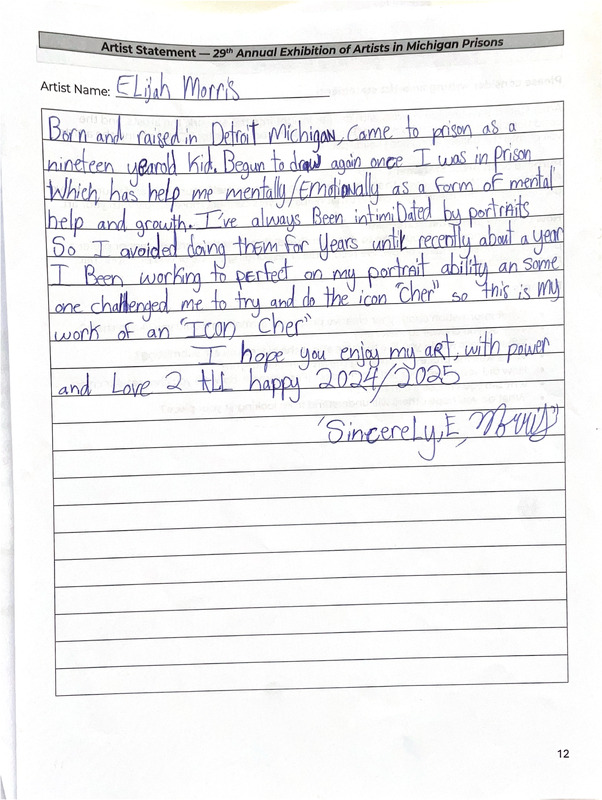 Artist Statement — 29th Annual Exhibition of Artists in Michigan Prisons
Artist Name: ELijah Morris
Born and raised in Detroit Michigan, Came to prison as a
nineteen yearold kid. Begun to draw again once I was in prison
Which has help me mentally/Emotionally as a form of mental
help and growth. I've always Been intimiDated by portraits
So I avoided doing them for years until recently about a year
I Been working to perfect on my portrait ability an some
one challenged me to try and do the icon "Cher" so this is my
work of an "Icon Cher"
I hope you enjoy my aRT, with power
and Love 2 ALL happy 2024/2025
"Sincerely, E, Morris"
12